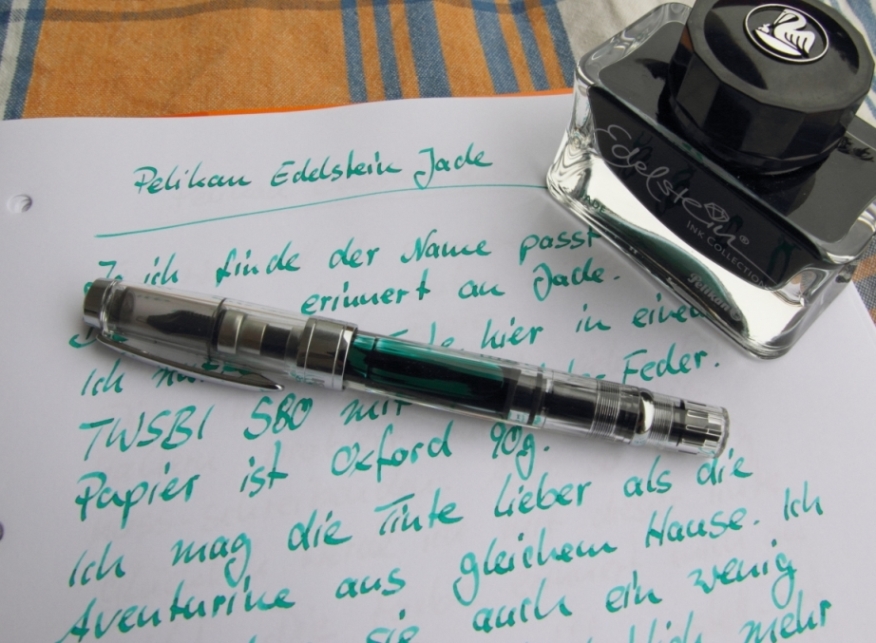 Pelikan Edelstein Jade
Ja ich finde der Name passt
erinnert an Jade.
hier in einer
Ich Feder.
TWSBI 580 mit
Papier ist Oxford 90g.
Ich mag die Tinte lieber als die
Aventurine aus gleichem Hause. Ich
sie auch ein wenig
mehr
Edelstein
INK COLLECTION
Pelikan